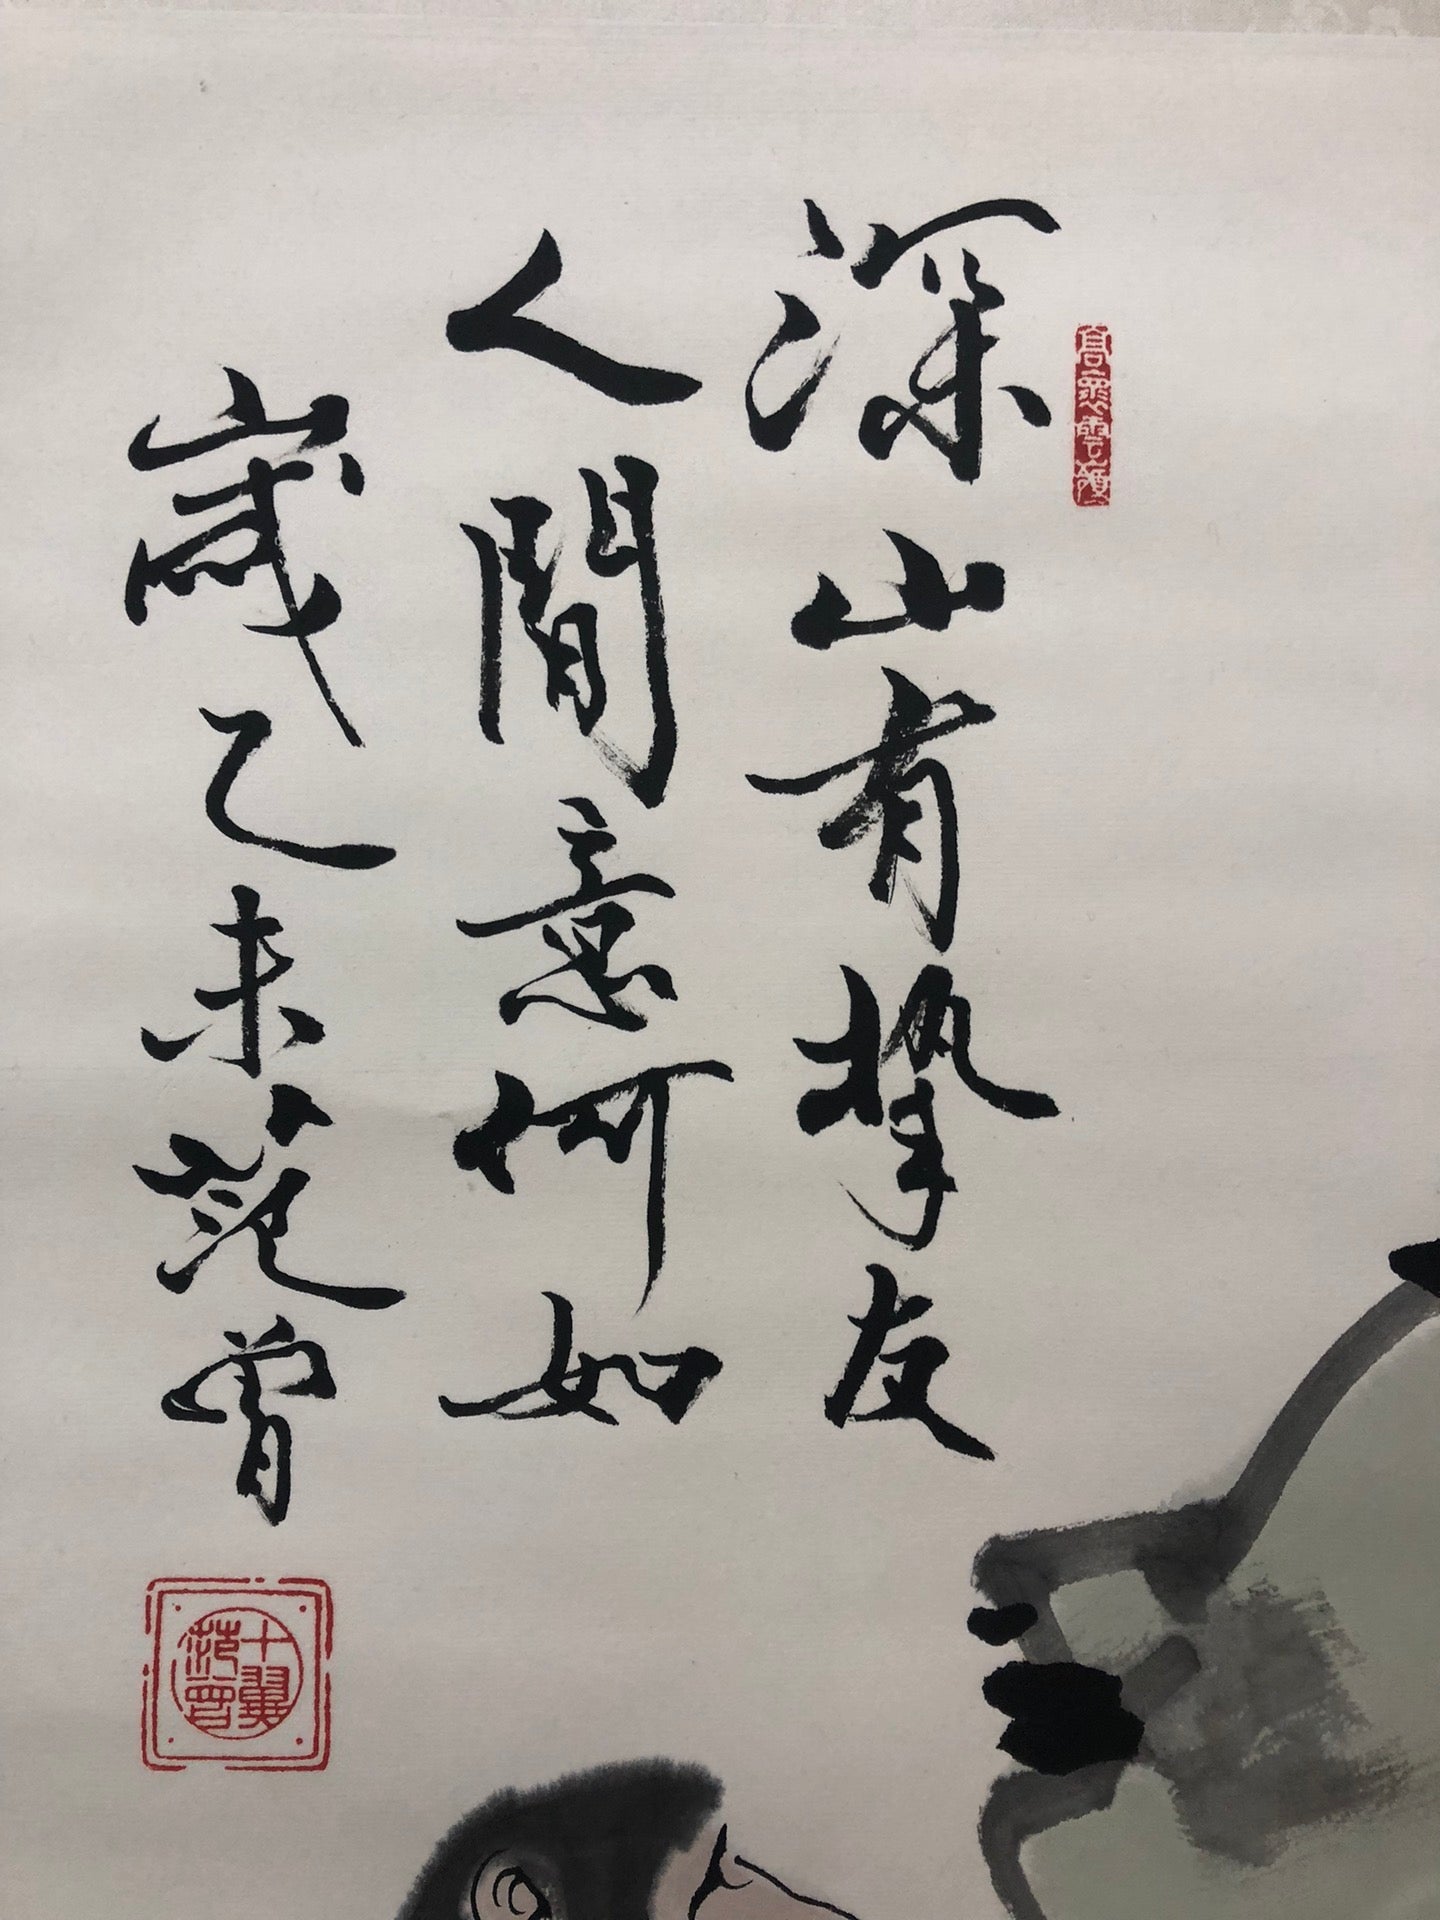 深山有挚友
人間意何如
歲乙未范曾
十翼范曾